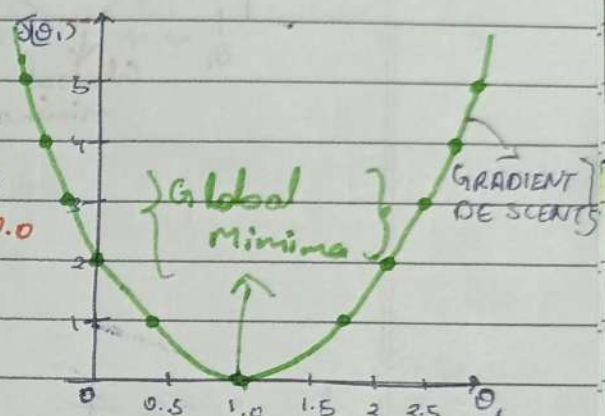 J(θ₁)
5
4
3
2
1
0
0.5
1.0
1.5
2
2.5
θ₁
{Global
Minima}
GRADIENT
DESCENT}